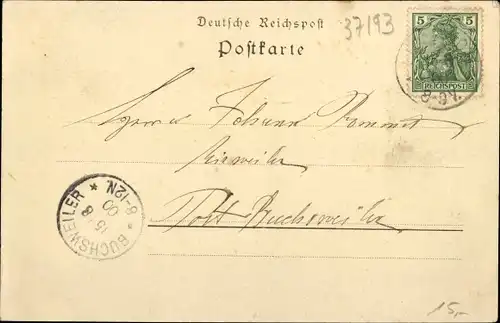 Deutsche Reichspost
37193
Postkarte
5 5
REICHSPOST
Herrn Johann
Post Buchsweiler
BUCHSWEILER
15 8
00
8-12N.
15,-